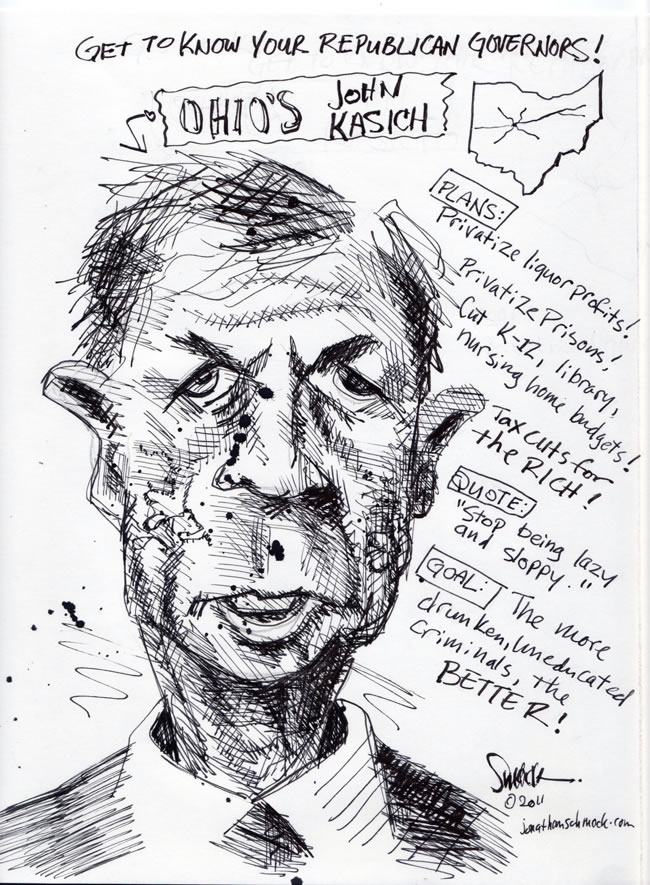 GET TO KNOW YOUR REPUBLICAN GOVERNORS!
OHIO'S
JOHN
KASICH
PLANS:
Privatize liquor profits!
Privatize Prisons!
Cut K-12, library,
nursing home budgets!
Tax cuts for
the RICH!
QUOTE:
"Stop being lazy
and sloppy."
GOAL: The more
drunken, uneducated
criminals, the
BETTER!
©2011
jonathanschmock.com